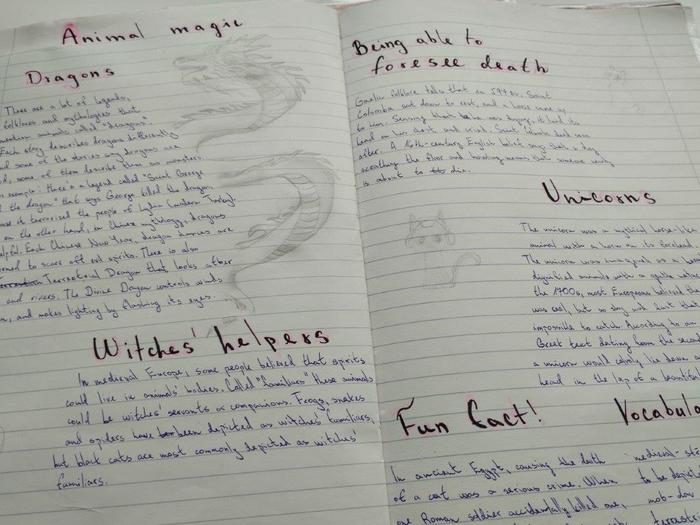 Animal magic
Dragons
There are a lot of legends,
folklores and mythologies that
mention animals called "dragons".
Each story describes dragons differently
some of the stories why dragons are
, some of them describe them as monsters.
example: there's a legend called "Saint George
the dragon" that says George killed the dragon
it terrorised the people of (modern Turkey).
on the other hand, in Chinese mythology, dragons
helpful. Each Chinese New Year, dragon dances are
to scare off evil spirits. There is also
Terrestrial Dragon that looks after
and rivers. The Divine Dragon controls winds
, and makes lighting by flashing its eyes.
Witches' helpers
In medieval Europe, some people believed that spirits
could live in animals' bodies. Called "familiars" these animals
could be witches' servants or companions. Frogs, snakes
and spiders have been depicted as witches' familiars,
but black cats are most commonly depicted as witches'
familiars.
Being able to
foresee death
Gaelic folklore tells that in 597 Saint
Columba sat down to rest, and a horse came up
to him. Sensing that he was dying, it laid its
head on his chest and cried. Saint Columba died soon
after. A 16th-century English belief says that a dog
scratching the floor and howling means that someone
is about to die.
Unicorns
The unicorn was a mythical horse-like
animal with a horn on its forehead.
The unicorn was as a
dignified animal with a
the 1700s, most Europeans believed the
was real, but so shy and that
impossible to catch. According to an
Greek text dating from the
a unicorn would calmly lie down
head in the lap of a beautiful
Fun fact!
In ancient Egypt, causing the death
of a cat was a serious crime. When
one Roman soldier accidentally killed one,
Vocabula
medieval-
to be depict
mob-
terrestr